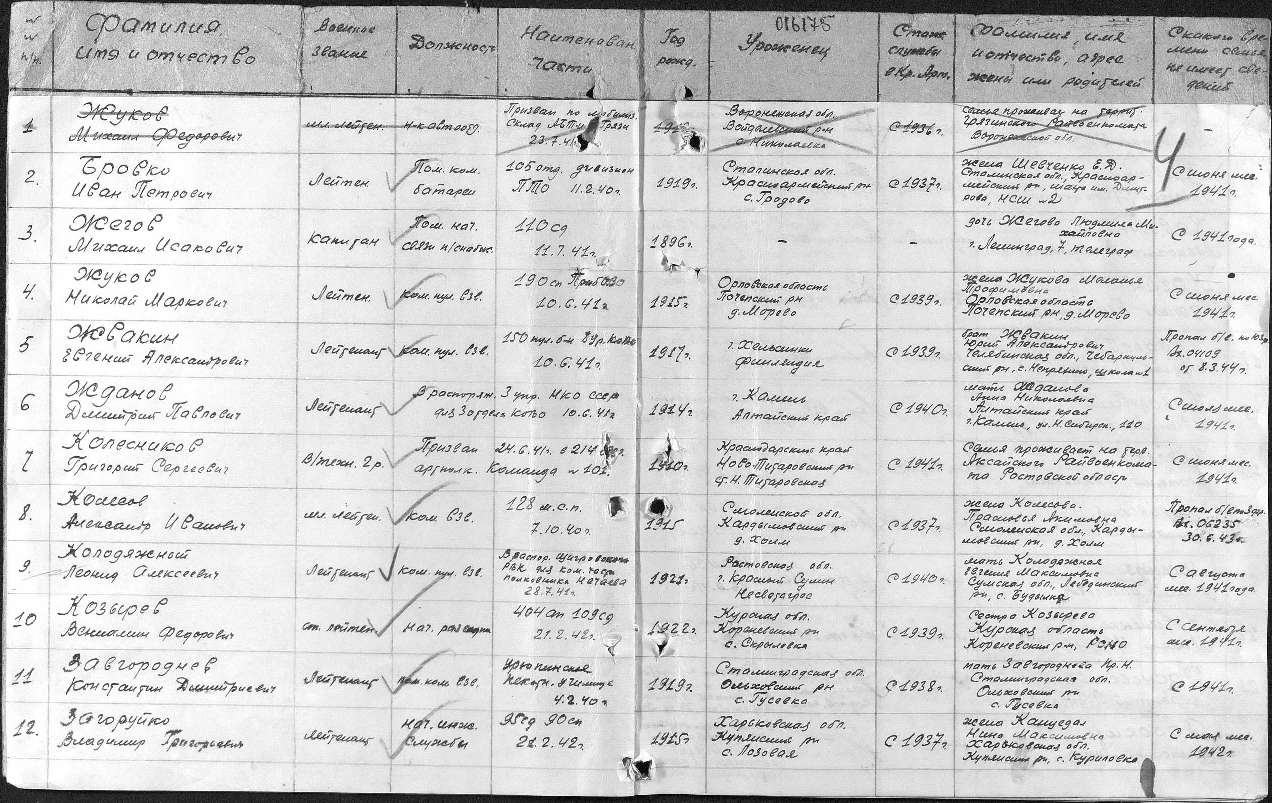 016175
№ № п/п.
Фамилия имя и отчество
Военное звание
Должность
Наименован. части
Год рожд.
Уроженец
Стаж службы в Кр. Арм.
Фамилия, имя и отчество, адрес жены или родителей
С какого времени семья не имеет сведений
1
Жуков
Михаил Федорович
мл. лейтен.
н-к автоотд.
Призван по мобилиз.
Склад
23.7.41г.
Воронежская обл.
с. Николаевка
С 1936г.
семья проживает на террит.
Грязинского Райвоенкомата
Воронежской обл.
-
4
2.
Бровко
Иван Петрович
Лейтен
Пом. ком.
батареи
105 отд. дивизион
ПТО 11.2.40г.
1919г.
Сталинская обл.
Красноармейский рн
с. Гродово
С 1937г.
жена Шевченко Е.Д.
Сталинская обл., Красноар-
мейский рн, шахта им. Димит-
рова, НСШ №2
С июня мес.
1941г.
3.
Жегов
Михаил Исакович
капитан
Пом. нач.
связи п/снабж.
110 сд
11.7.41г.
1896г.
-
-
дочь Жегова Людмила Ми-
хайловна
г. Ленинград, 7, телеграф
С 1941 года.
4.
Жуков
Николай Маркович
Лейтен.
ком. пул. взв.
190 сп ПрибОВО
10.6.41г.
1915г.
Орловская область
Почепский рн
д. Морево
С 1939г.
жена Жукова Маланья
Трофимовна
Орловская область
Почепский рн, д. Морево
С июня мес.
1941г.
5
Жвакин
Евгений Александрович
Лейтенант
ком. пул. взв.
150 пул. бн 8 ур. КОВО
10.6.41г.
1917г.
г. Хельсинки
Финляндия
С 1939г.
брат Жвакин
Юрий Александрович
Челябинская обл., Чебаркуль-
ский рн, с. Непряхино, школа
Пропал б/в. пр.
Вх. 04109
от 8.3.44г.
6
Жданов
Дмитрий Павлович
Лейтенант
В распоряж. 3 упр. НКО СССР
для 3 отдела КОВО 10.6.41г.
1914г.
г. Камень
Алтайский край
С 1940г.
мать Жданова
Анна Николаевна
Алтайский край
г. Камень, ул. Н. Сибирск., 110
С июля мес.
1941г.
7
Колесников
Григорий Сергеевич
В/техн. 2 р.
Призван 24.6.41г. в 214
артполк. Команда № 101
1910г.
Краснодарский край
Ново Титаровский рн
ст. Н. Титаровская
С 1941г.
Семья проживает на терр.
Аксайского Райвоенкома-
та Ростовской область
С июня мес.
1941г.
8.
Колесов
Александр Иванович
мл. лейтен.
ком. взв.
128 м.с.п.
7.10.40г.
1915
Смоленской обл.
Кардымовский рн
д. Холм
С 1937г.
жена Колесова
Прасковья Акимовна
Смоленская обл., Карды-
мовский рн, д. Холм
Пропал б/в
Вх. 06235
30.6.43г.
9
Колодяжный
Леонид Алексеевич
Лейтенант
ком. пул. взв.
В распор. Щигровского
РВК для ком. части
полковника Нечаева
28.7.41г.
1921г.
Ростовская обл.
г. Красный Сулин
Несветаргрэс
С 1940г.
мать Колодяжная
Евгения Максимовна
Сумская обл., Лебединский
рн, с. Будылка
С августа
мес. 1941 года
10
Козырев
Вениамин Федорович
ст. лейтен.
нач. разведки
404 ап 109 сд
21.2.42г.
1922г.
Курская обл.
Кореневский рн
с. Скрылевка
С 1939г.
Сестра Козырева
Курская область
Кореневский рн, РОНО
С сентября
мес. 1941г.
11
Завгороднев
Константин Дмитриевич
Лейтенант
пом. ком. взв.
Урюпинское
пехотн. училище
4.2.40г.
1919г.
Сталинградская обл.
Ольховский рн
с. Гусевка
С 1938г.
мать Завгороднева Пр. Н.
Сталинградская обл.
Ольховский рн
с. Гусевка
С 1941г.
12.
Загоруйко
Владимир Григорьевич
лейтенант
нач. инж.
службы
95 сд 90 сп
21.2.42г.
1915г.
Харьковская обл.
Купянский рн
с. Лозовая
С 1937г.
жена Канцедал
Нина Максимовна
Харьковская обл.
Купянский рн, с. Куриловка
С мая мес.
1942г.